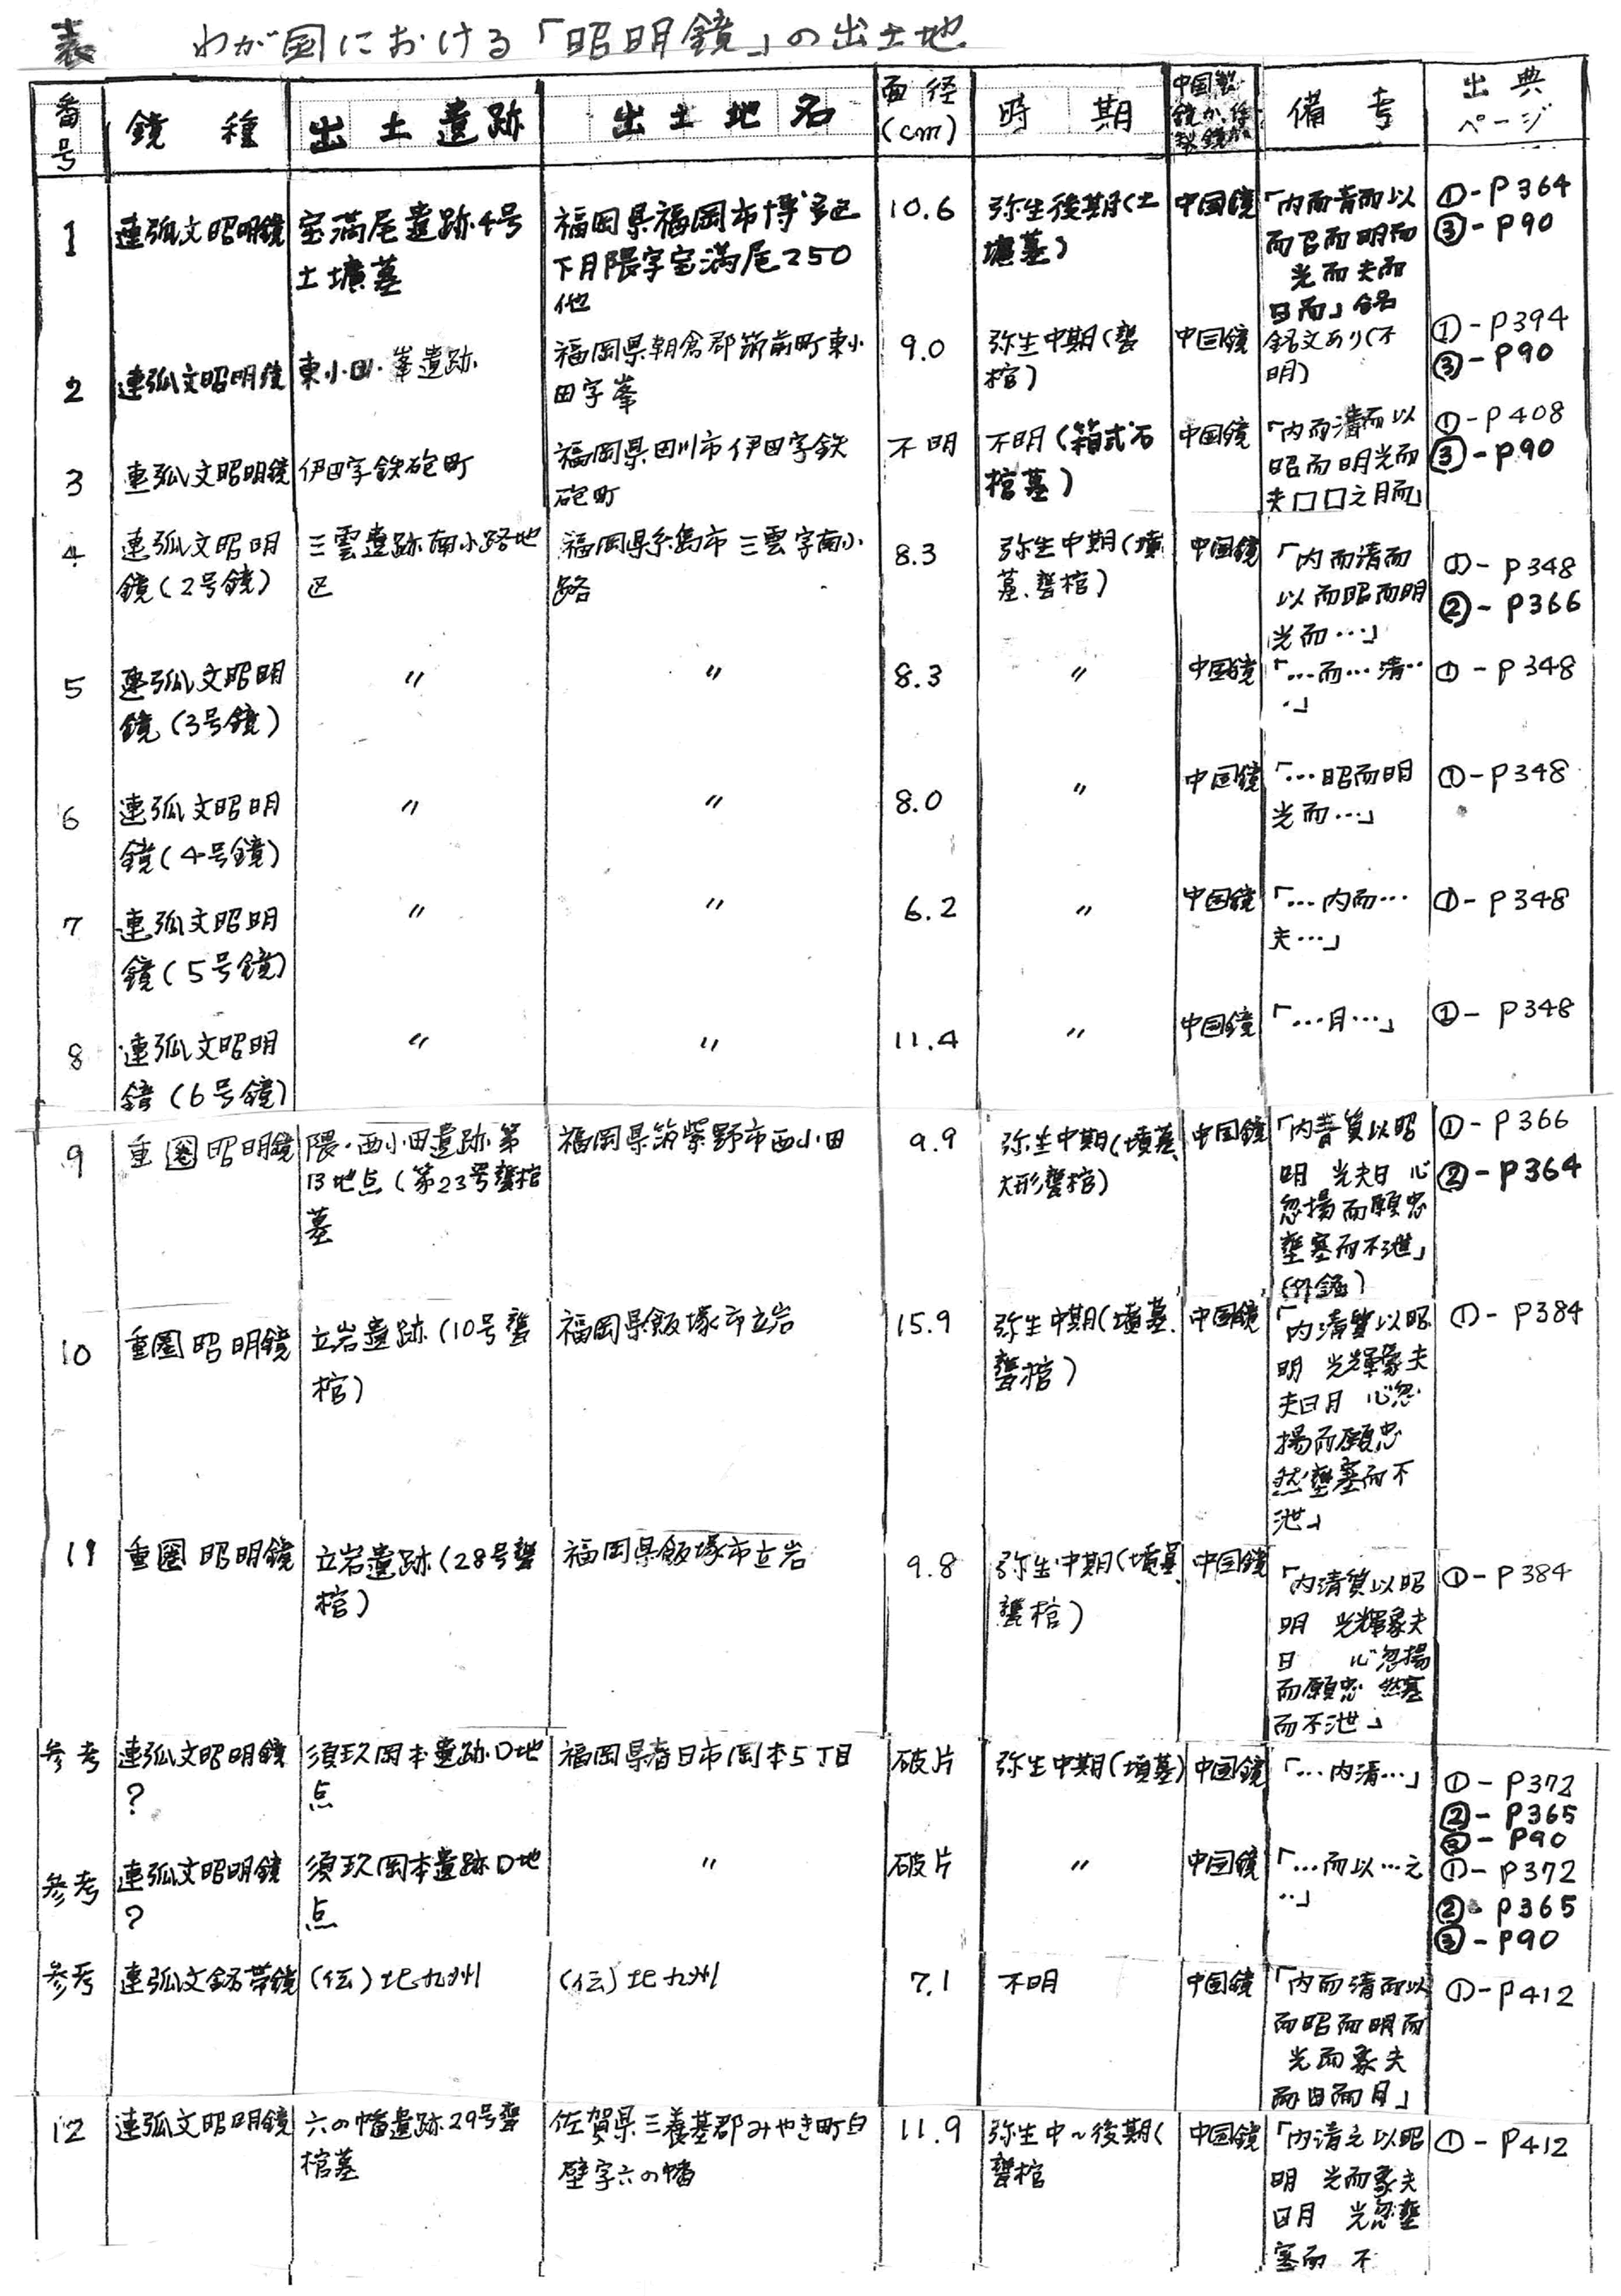 表 わが国における「昭明鏡」の出土地
番号 鏡種 出土遺跡 出土地名 面径(cm) 時期 中国製鏡か、倣製鏡か 備考 出典ページ
1 連弧文昭明鏡 宝満尾遺跡4号土壙墓 福岡県福岡市博多区下月隈字宝満尾250他 10.6 弥生後期(土壙墓) 中国鏡 「内而青而以而召而明而 光而夫而日而」銘 ①-P364 ③-P90
2 連弧文昭明鏡 東小田・峯遺跡 福岡県朝倉郡筑前町東小田字峯 9.0 弥生中期(甕棺) 中国鏡 銘文あり(不明) ①-P394 ③-P90
3 連弧文昭明鏡 伊田字鉄砲町 福岡県田川市伊田字鉄砲町 不明 不明(箱式石棺墓) 中国鏡 「内而清而以昭而明光而夫口口之月而」 ①-P408 ③-P90
4 連弧文昭明鏡(2号鏡) 三雲遺跡南小路地区 福岡県糸島市三雲字南小路 8.3 弥生中期(墳墓、甕棺) 中国鏡 「内而清而以而昭而明光而…」 ①-P348 ②-P366
5 連弧文昭明鏡(3号鏡) 〃 〃 8.3 〃 中国鏡 「…而…清…」 ①-P348
6 連弧文昭明鏡(4号鏡) 〃 〃 8.0 〃 中国鏡 「…昭而明光而…」 ①-P348
7 連弧文昭明鏡(5号鏡) 〃 〃 6.2 〃 中国鏡 「…内而…夫…」 ①-P348
8 連弧文昭明鏡(6号鏡) 〃 〃 11.4 〃 中国鏡 「…月…」 ①-P348
9 重圏昭明鏡 隈・西小田遺跡第13地点(第23号甕棺墓 福岡県筑紫野市西小田 9.9 弥生中期(墳墓、大形甕棺) 中国鏡 「内青質以昭明 光夫日 心忽揚而願忠 壅塞而不泄」(外銘) ①-P366 ②-P364
10 重圏昭明鏡 立岩遺跡(10号甕棺) 福岡県飯塚市立岩 15.9 弥生中期(墳墓、甕棺) 中国鏡 「内清質以昭明 光輝象夫夫日月 心忽揚而願忠 然壅塞而不泄」 ①-P384
11 重圏昭明鏡 立岩遺跡(28号甕棺) 福岡県飯塚市立岩 9.8 弥生中期(墳墓、甕棺) 中国鏡 「内清質以昭明 光輝象夫日 心忽揚而願忠 然塞而不泄」 ①-P384
参考 連弧文昭明鏡? 須玖岡本遺跡D地点 福岡県春日市岡本5丁目 破片 弥生中期(墳墓) 中国鏡 「…内清…」 ①-P372 ②-P365 ③-P90
参考 連弧文昭明鏡? 須玖岡本遺跡D地点 〃 破片 〃 中国鏡 「…而以…之…」 ①-P372 ②-P365 ③-P90
参考 連弧文銘帯鏡 (伝)北九州 (伝)北九州 7.1 不明 中国鏡 「内而清而以而昭而明而 光而象夫而日而月」 ①-P412
12 連弧文昭明鏡 六の幡遺跡29号甕棺墓 佐賀県三養基郡みやき町白壁字六の幡 11.9 弥生中~後期(甕棺 中国鏡 「内清之以昭明 光而象夫日月 光忽壅塞而 不 ①-P412